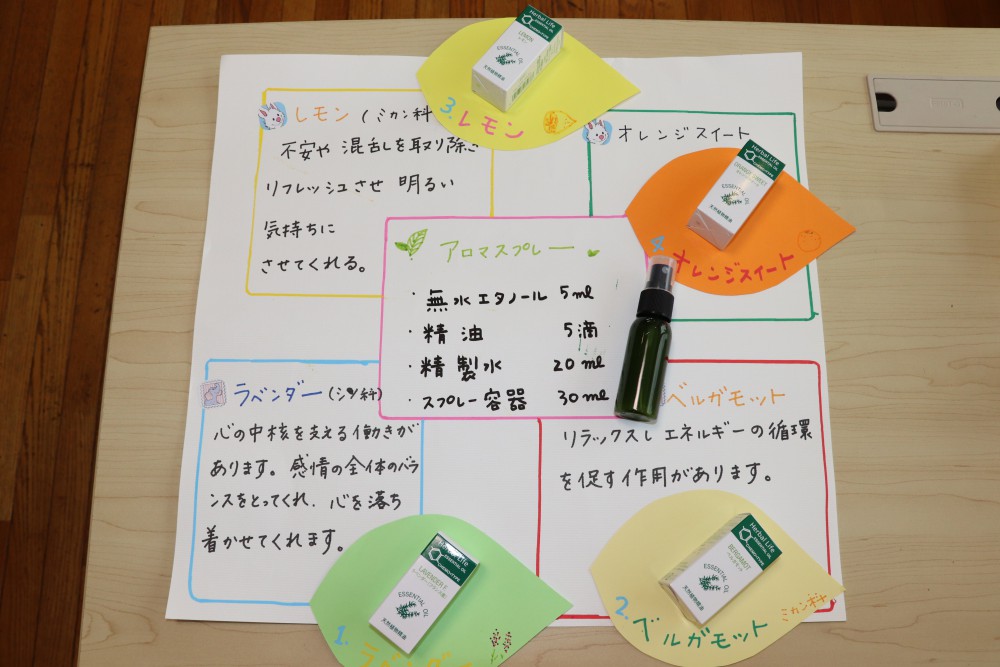 Herbal Life
ESSENTIAL OIL
LEMON
レモン
ESSENTIAL OIL
天然植物精油
3.レモン
レモン (ミカン科
不安や 混乱を取り除き
リフレッシュさせ 明るい
気持ちに
させてくれる。
オレンジスイート
Herbal Life
ESSENTIAL OIL
ORANGE SWEET
ESSENTIAL OIL
天然植物精油
オレンジスイート
アロマスプレー
・無水エタノール 5ml
・精油 5滴
・精製水 20ml
・スプレー容器 30ml
ラベンダー(シソ科)
心の中核を支える働きが
あります。感情の全体のバラ
ンスをとってくれ、心を落ち
着かせてくれます。
ベルガモット
リラックスし エネルギーの循環
を促す作用があります。
Herbal Life
ESSENTIAL OIL
LAVENDER F.
ESSENTIAL OIL
天然植物精油
1.
Herbal Life
ESSENTIAL OIL
BERGAMOT
ベルガモット
ESSENTIAL OIL
天然植物精油
2.
ベルガモット
ミカン科